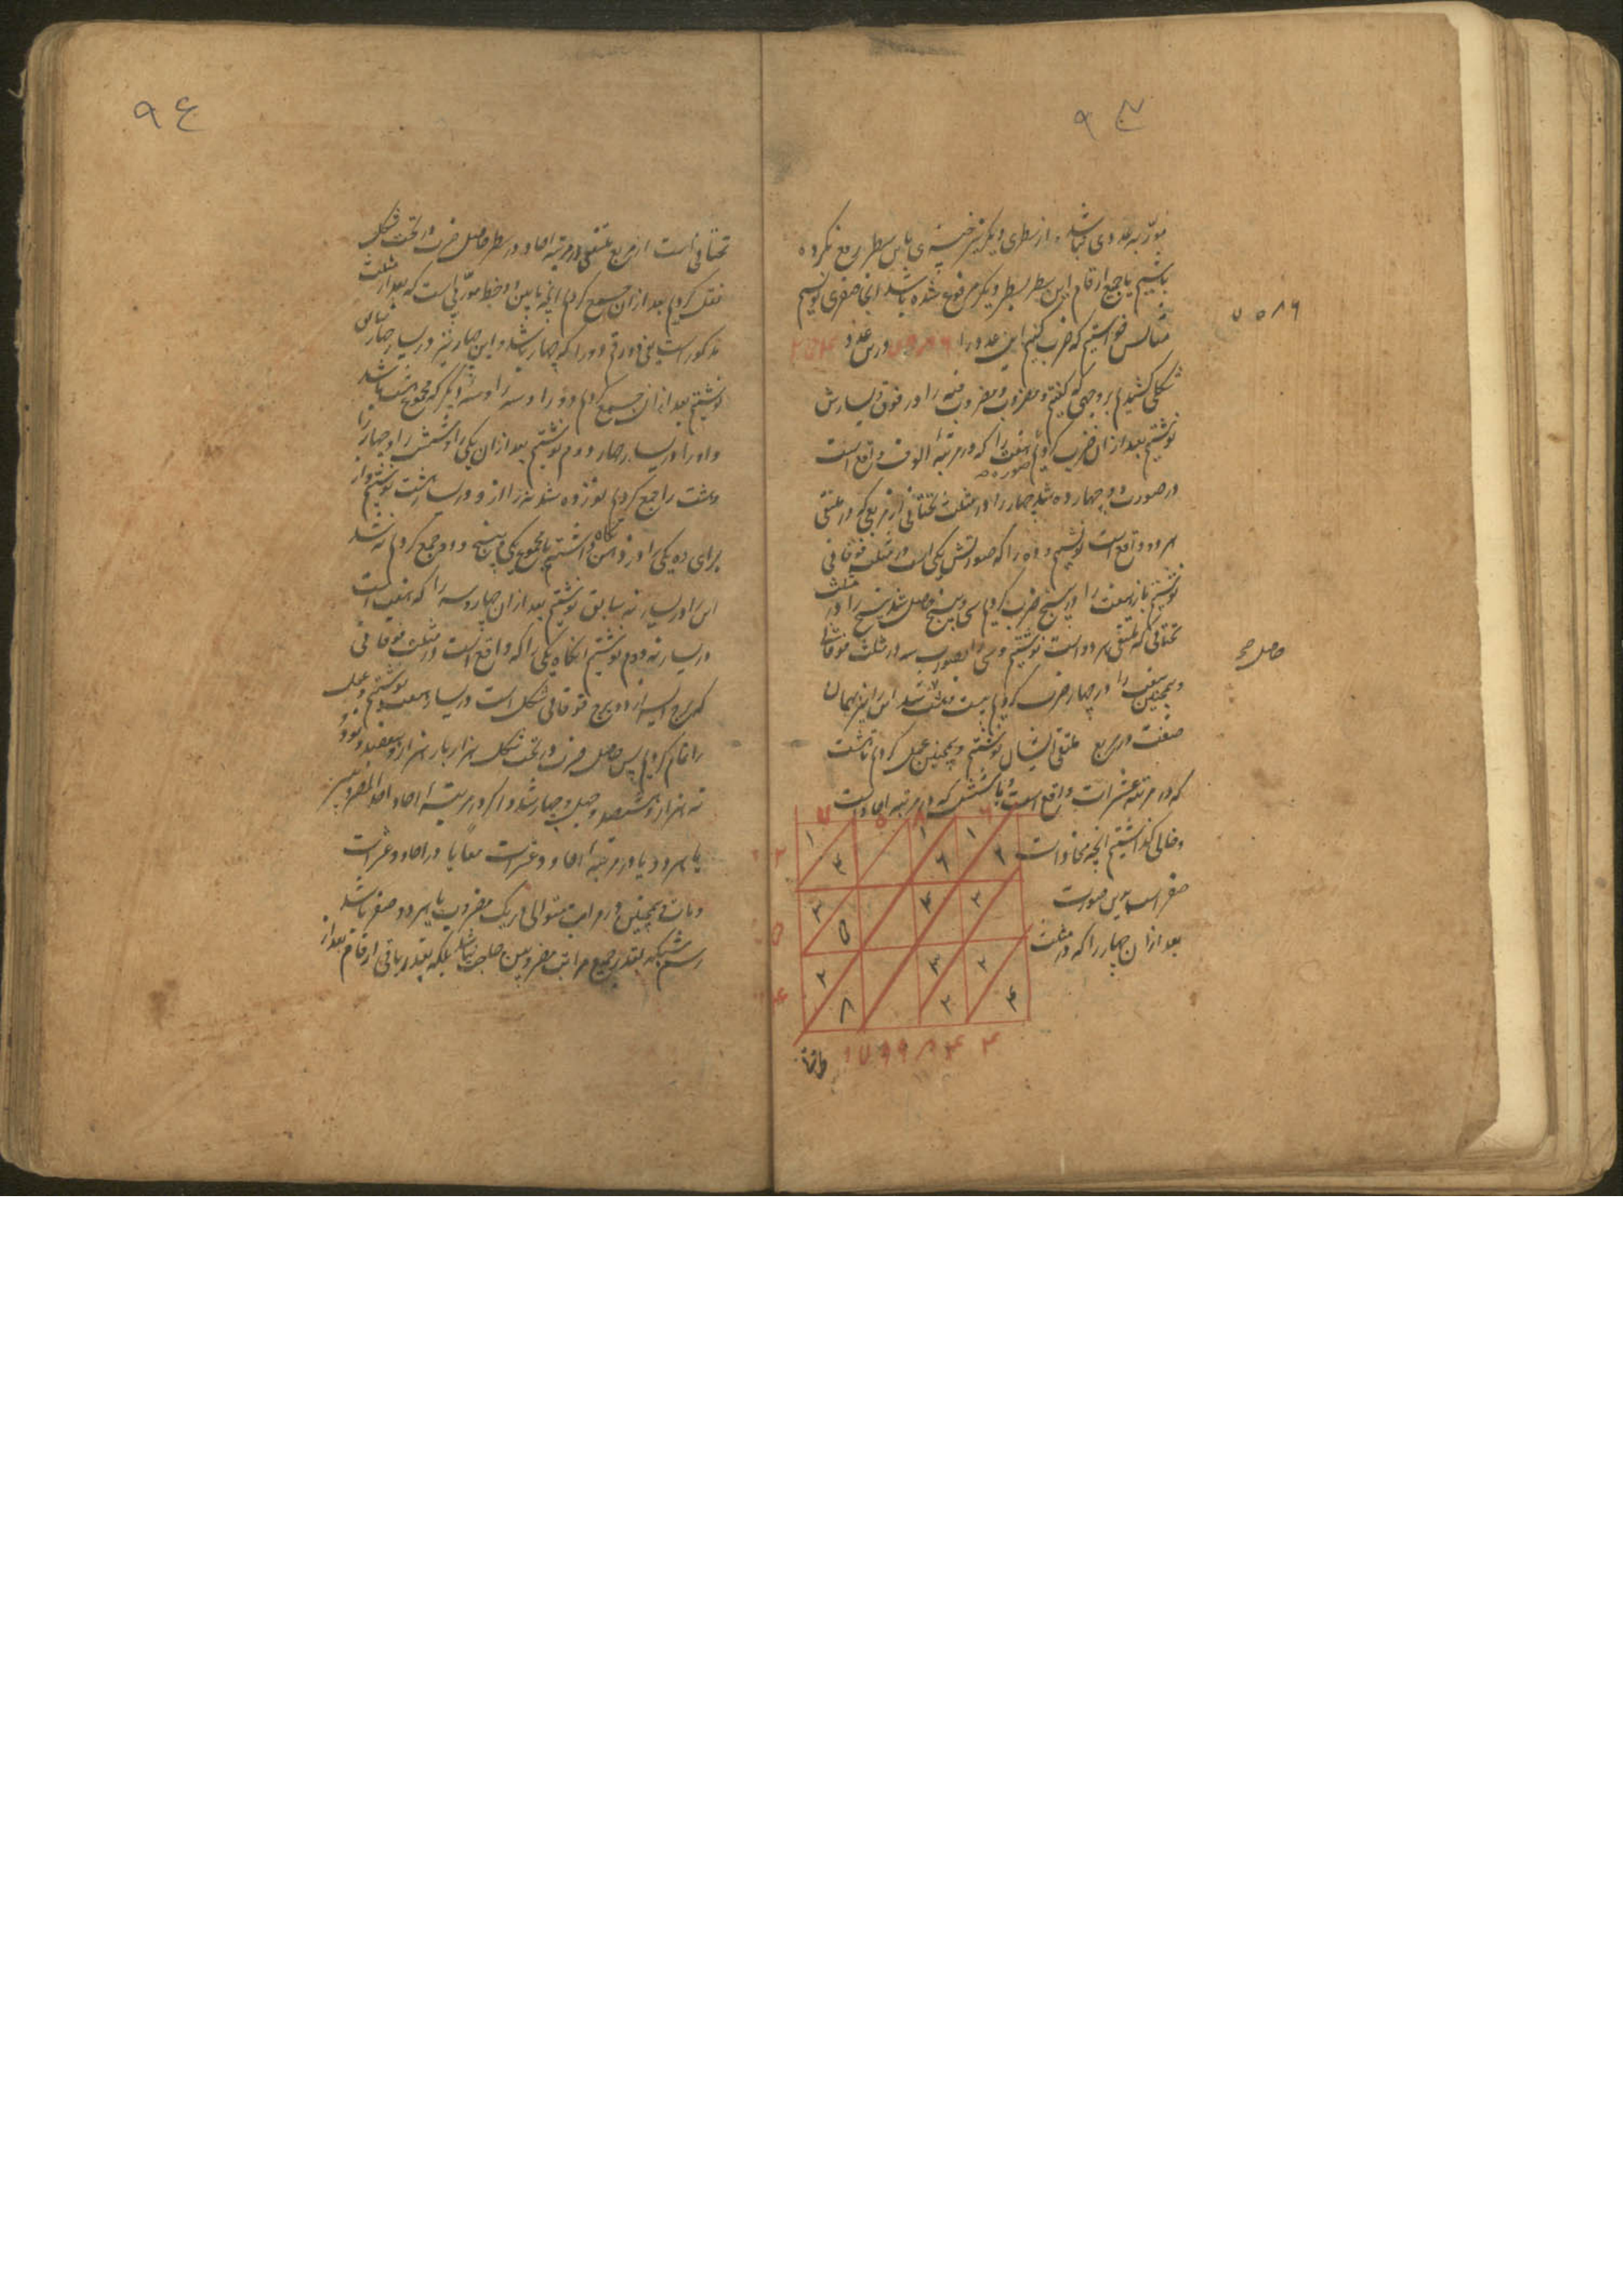 ۹۳
مورّبه عددی نباشد و از سطری دیگر نیز چیزی باین سطر رفع نکرده
باشیم یا جمیع ارقام این سطر بسطر دیگر مرفوع شده باشد آنجا صفری نویسیم
مثالش خواستیم که ضرب کنیم این عدد را ۷۵۸۶ درین عدد ۲۵۴
۷۵۸۶
شکلی کشیدیم بر وجهی که گفتیم و مضروب و مضروب فیه را در فوق و یسارش
نوشتیم بعد از آن ضرب کردیم هفت را که در مرتبهٔ الوف واقع است
در صورت دو چهارده شد چهار را در مثلث تحتانی از مربعی که در ملتقی
هر دو واقع است نوشتیم و ده را که صورتش یکی است در مثلث فوقانی
نوشتیم باز هفت را در پنج ضرب کردیم سی و پنج حاصل شد پنج را در مثلث
تحتانی که ملتقی هر دو است نوشتیم و سی را بصورت سه در مثلث فوقانی
حاصل
و همچنین هفت را در چهار ضرب کردیم بیست و هشت شد این را نیز بهمان
صفت در مربع ملتقی ایشان نوشتیم و همچنین عمل کردیم تا هشت
که در مرتبه عشرات واقع است و با شش که در مرتبه احاد است
و خالی گذاشتیم آنچه محاذات
صفر است برین صورت
بعد از آن چهار را که در مثلث
۷ ۵ ۸ ۶
۲
۵
۴
۱ ۷ ۹ ۹ ۸ ۴ ۴
۹۴
تحتانی است از مربع ملتقی در مرتبه احاد در سطر حاصل ضرب در تحت شکل
نقل کردیم بعد از آن جمع کردیم آنچه مابین دو خط مورّبی است که بعد از مثلث
مذکور است یعنی دو رقم دو را که چهار باشد و این چهار نیز در یسار چهار سابق
نوشتیم بعد از آن جمع کردیم دو را و سه را و سه دیگر که مجموع هشت باشد
و او را در یسار چهار دوم نوشتیم بعد از آن یکی را و شش را و چهار را
و هشت را جمع کردیم نوزده شد نه را از او در یسار هشت نوشتیم و از
برای ده یکی را در ذهن نگاه داشتیم با مجموع یکی و پنج و دو جمع کردیم نه شد
این را در یسار نه سابق نوشتیم بعد از آن چهار و سه را که هفت است
در یسار نه دوم نوشتیم آنگاه یکی را که واقع است در مثلث فوقانی
شکل است در یسار هفت نوشتیم و عمل
را تمام کردیم پس حاصل ضرب در تحت شکل هزار بار هزار و هفتصد و نود و
نه هزار و هشتصد و چهل و چهار شد و اگر در مرتبه احاد احد المضروبین
یا هر دو یا در مرتبهٔ احاد و عشرات معاً یا در احاد و عشرات
و مآت و همچنین در مراتب متوالی در یک مضروب یا هر دو صفر باشد
رسم شبکه بقدر جمیع مراتب مضروبین حاجت نباشد بلکه بقدر باقی ارقام بعد از